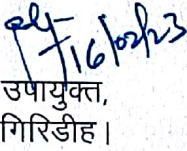 16/02/23
उपायुक्त,
गिरिडीह।